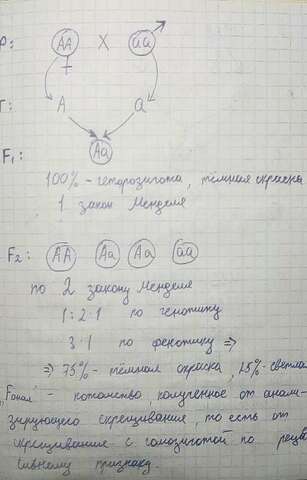 P: АА X аа
Г: А а
F₁: Аа
100% - гетерозигота, тёмная окраска
1 закон Менделя
F₂: АА Аа Аа аа
по 2 закону Менделя
1:2:1 по генотипу
3:1 по фенотипу ⇒
⇒ 75% - тёмная окраска, 25% - светлая
"Fанал - потомство, полученное от анали-
зирующего скрещивания, то есть от
скрещивания с гомозиготой по рецес-
сивному признаку.